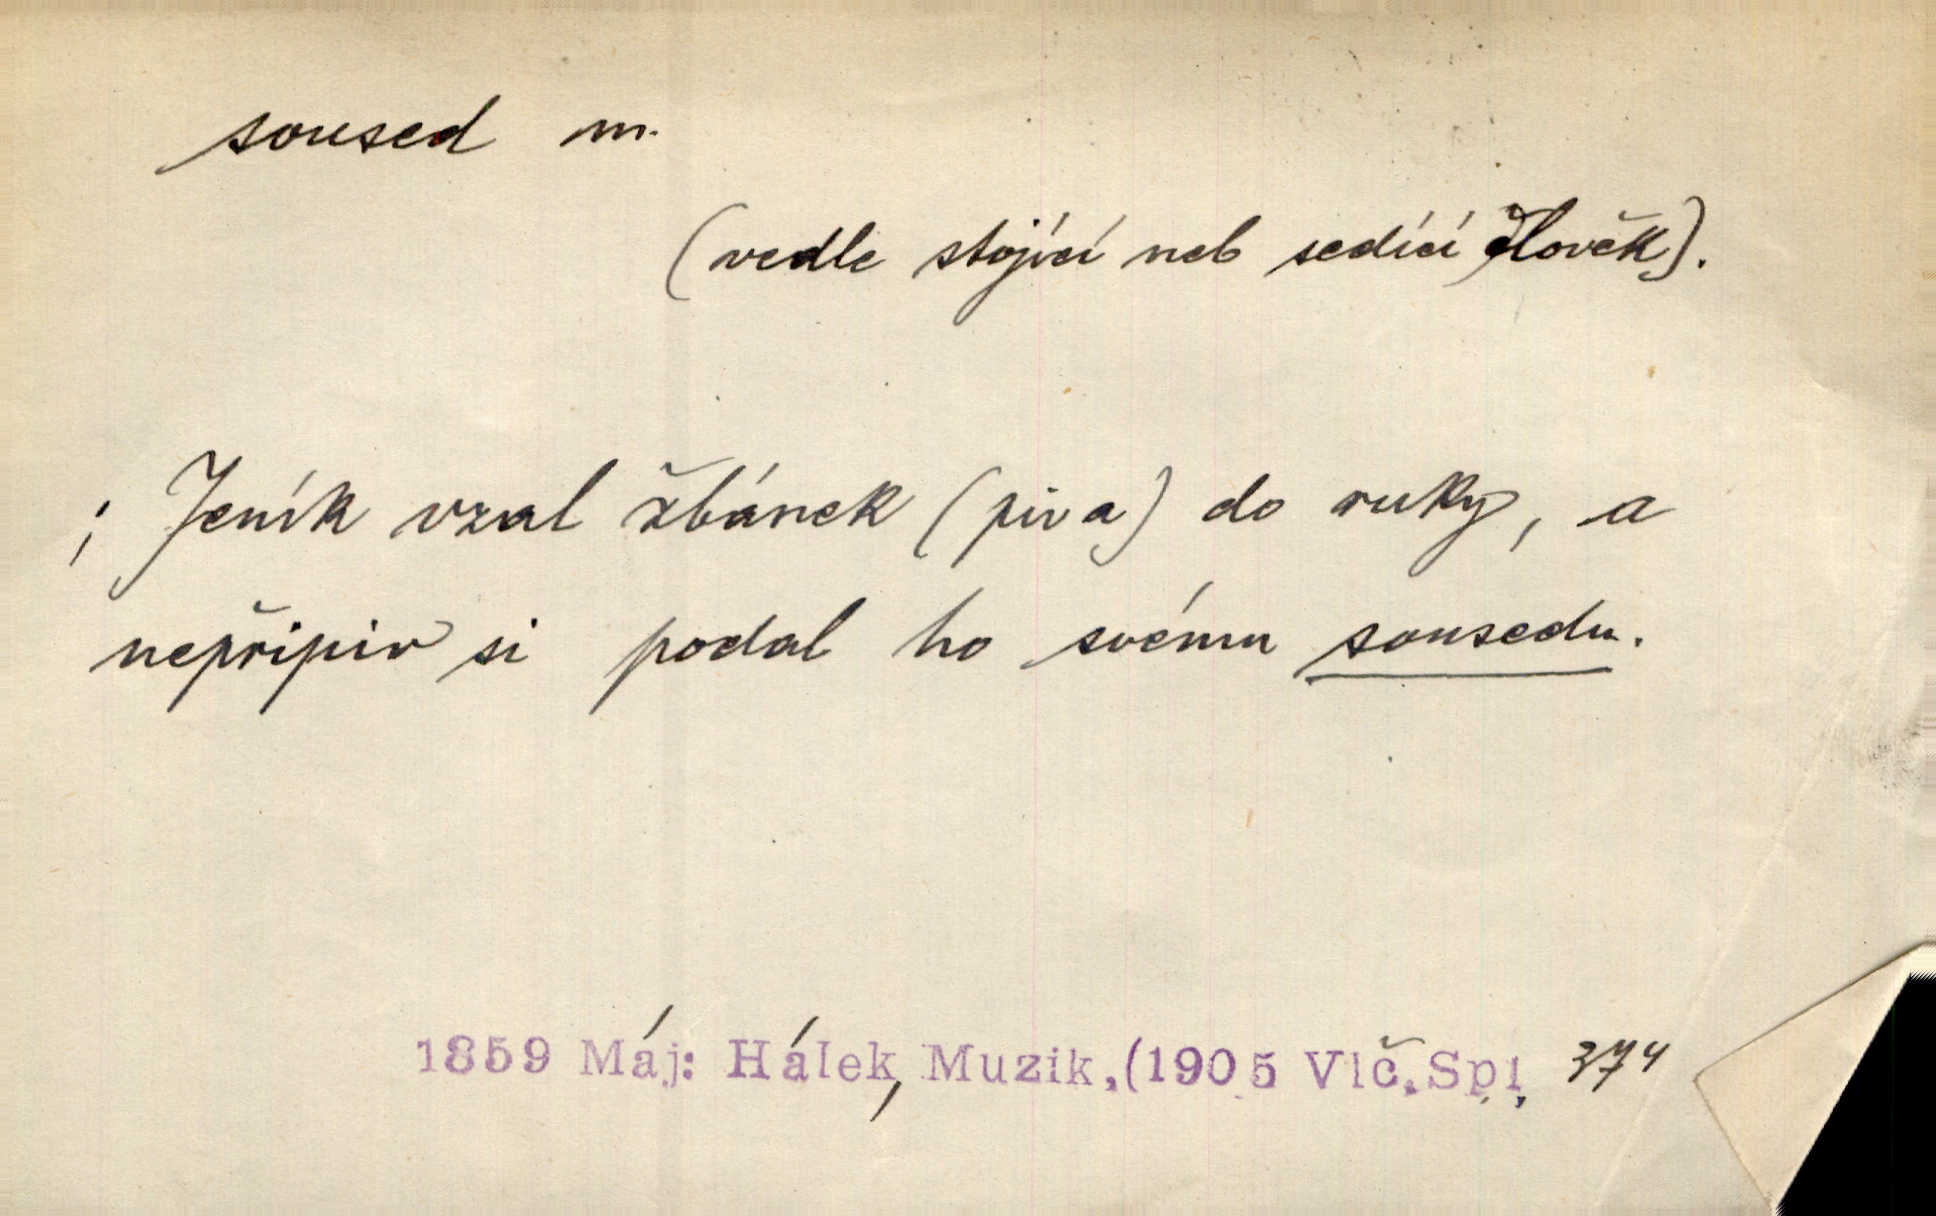 soused m.
(vedle stojící neb sedící člověk).
; Jeník vzal žbánek (piva) do ruky, a
nepřipiv si podal ho svému sousedu.
1859 Máj: Hálek, Muzik.(1905 Vlč.Sp1, 374